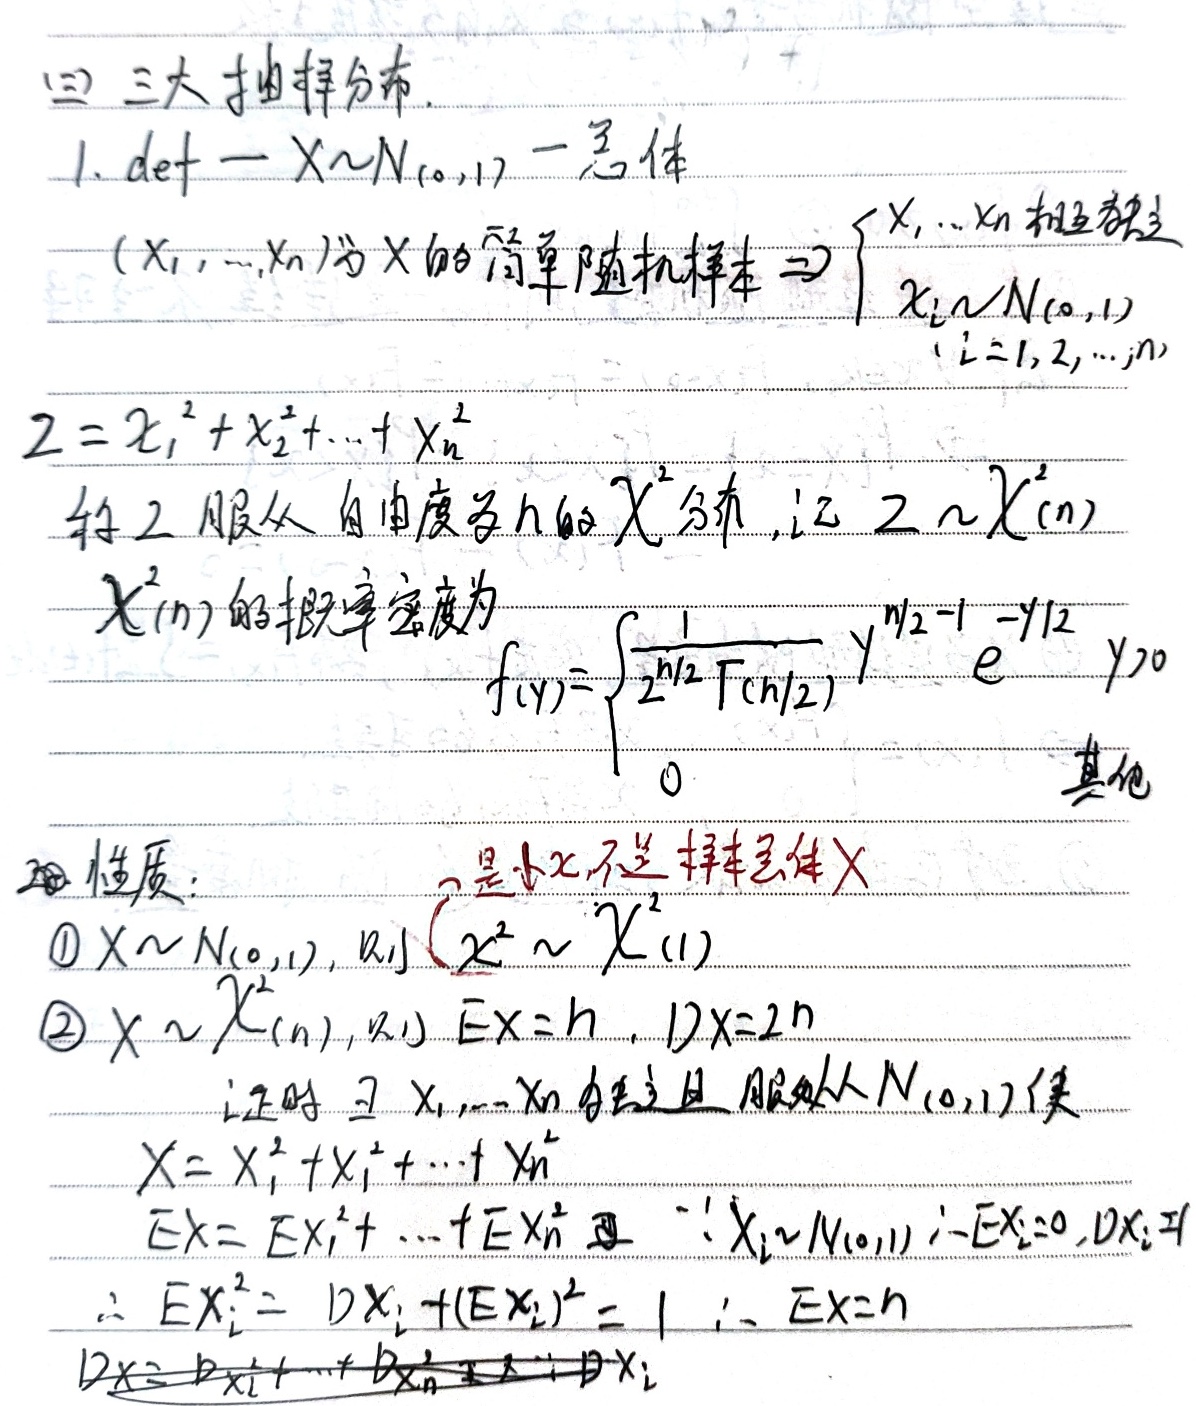 (三) 三大抽样分布.
1. def — X~N(0,1) — 总体
(X₁, …, Xn)为X的简单随机样本 ⇒ { X₁…Xn 相互独立
xᵢ~N(0,1)
(i=1,2,…,n)
Z = x₁² + x₂² + … + xn²
称Z服从自由度为n的χ²分布,记 Z ~ χ²(n)
χ²(n)的概率密度为
f(y) = { 1/(2^(n/2) Γ(n/2)) y^(n/2-1) e^(-y/2) y>0
0 其他
2 性质:
是小x,不是样本总体X
① X~N(0,1), 则 x² ~ χ²(1)
② X ~ χ²(n), 则 EX=n, DX=2n
证时 ∃ X₁,…Xn 独立且服从N(0,1)使
X = X₁² + X₁² + … + Xn²
EX = EX₁² + … + EXn² ∵ Xᵢ~N(0,1) ∴ EXᵢ=0, DXᵢ=1
∴ EXᵢ² = DXᵢ + (EXᵢ)² = 1 ∴ EX=n